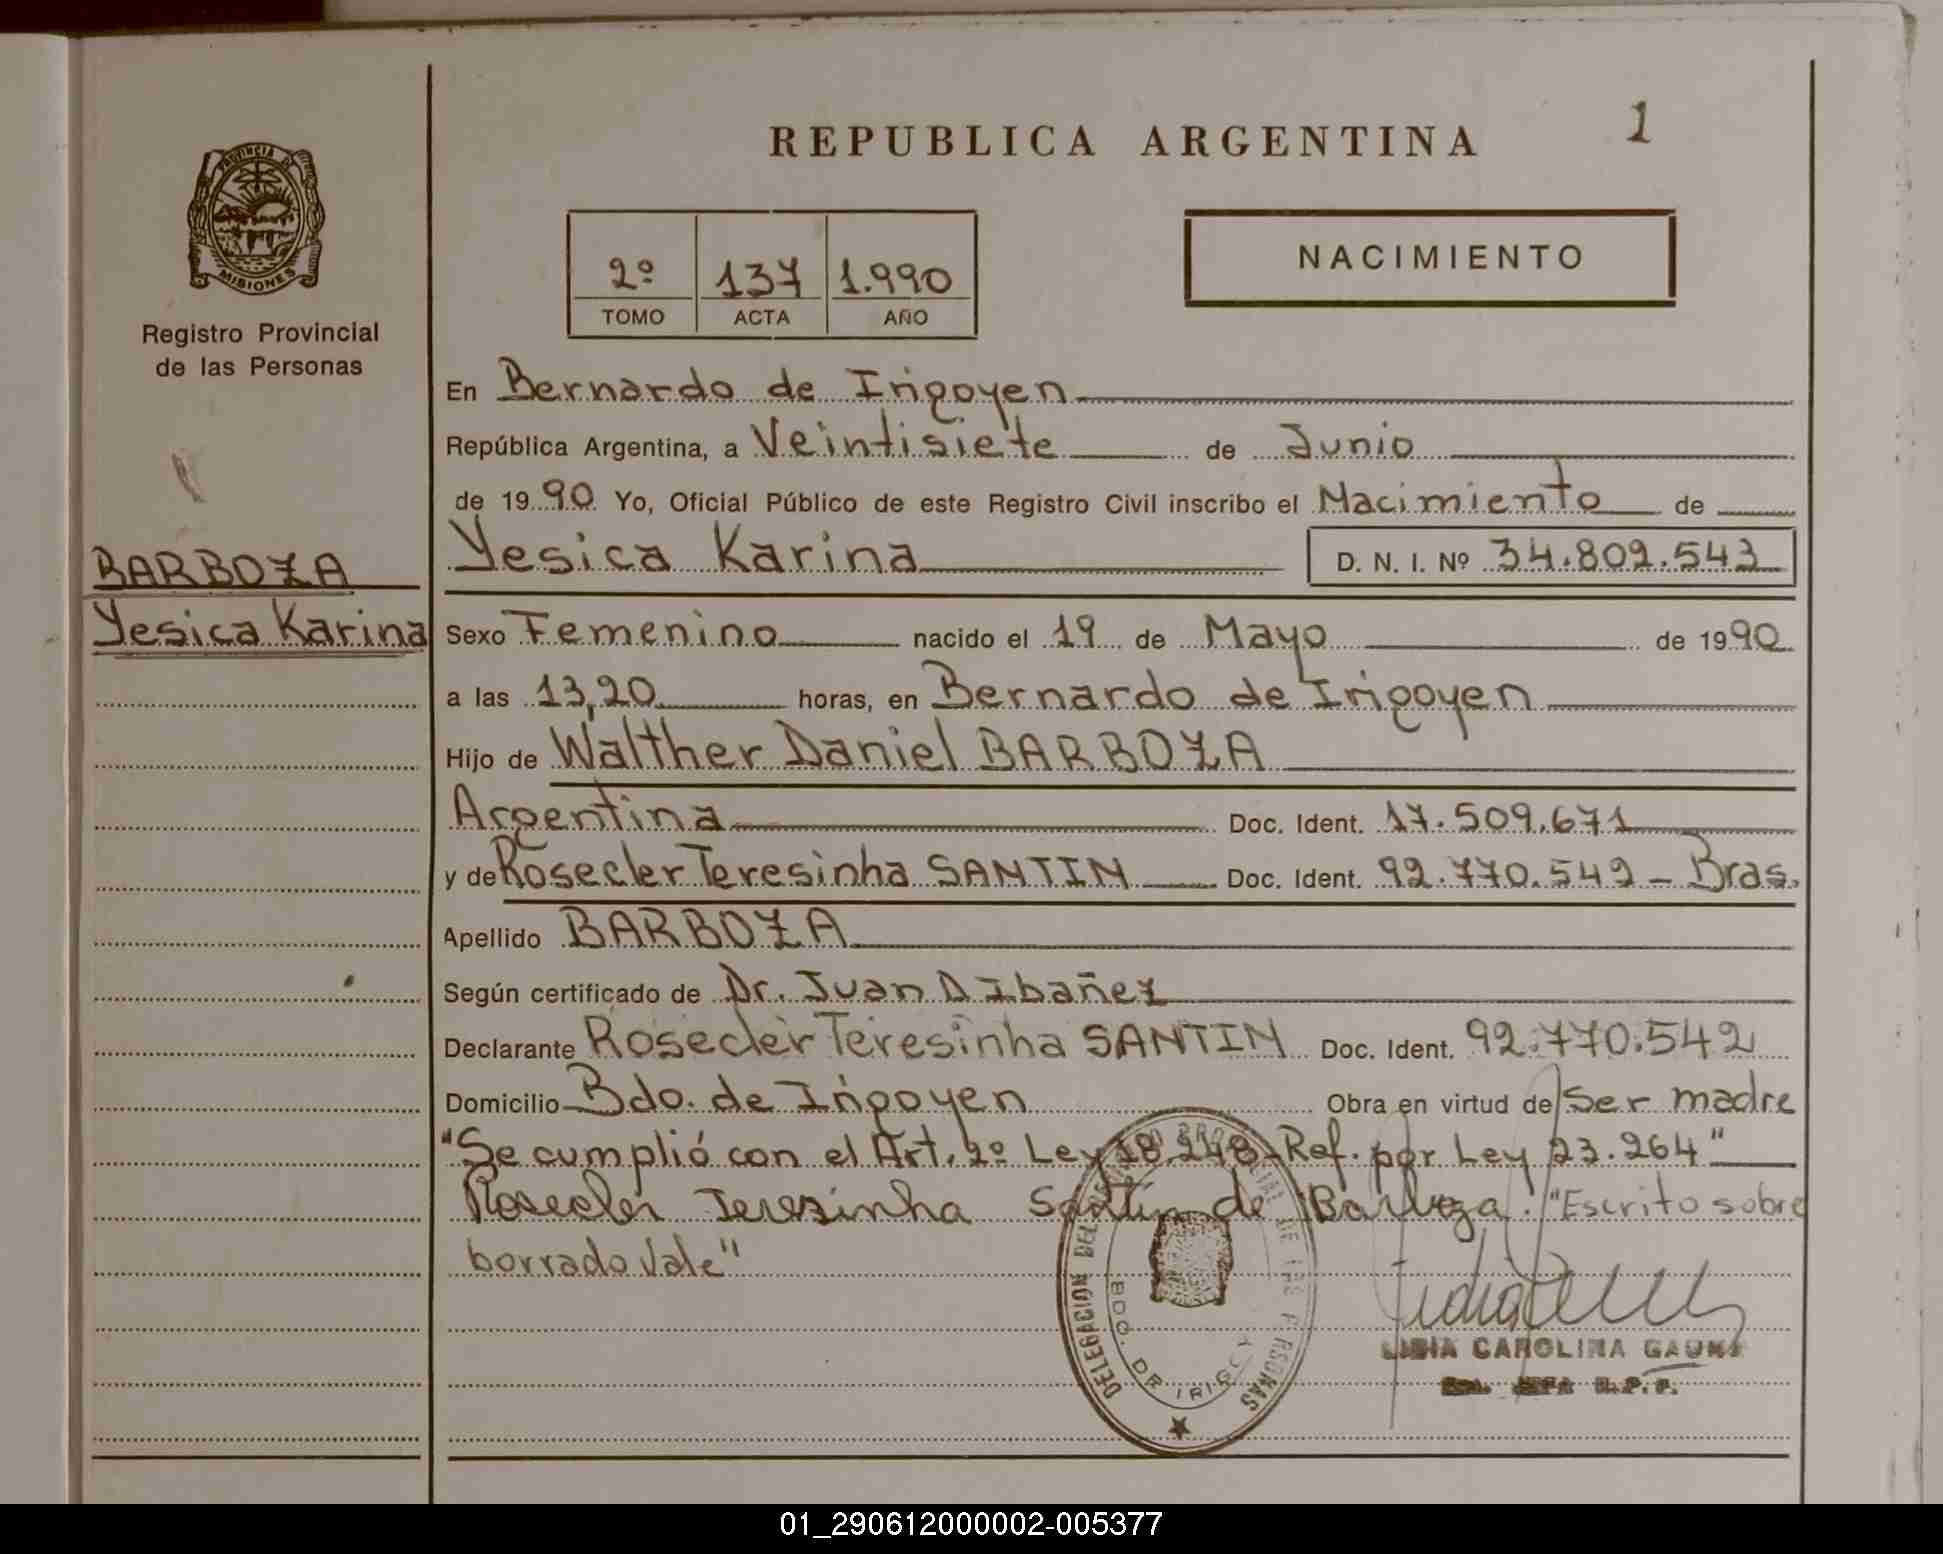 REPUBLICA ARGENTINA
1
PROVINCIA DE
MISIONES
Registro Provincial
de las Personas
2º 137 1.990
TOMO ACTA AÑO
NACIMIENTO
En Bernardo de Irigoyen
República Argentina, a Veintisiete de Junio
de 1990 Yo, Oficial Público de este Registro Civil inscribo el Nacimiento de
BARBOZA
Yesica Karina
Yesica Karina D. N. I. Nº 34.802.543
Sexo Femenino nacido el 19 de Mayo de 1990
a las 13,20 horas, en Bernardo de Irigoyen
Hijo de Walther Daniel BARBOZA
Argentina Doc. Ident. 17.509.671
y de Rosecler Teresinha SANTIN Doc. Ident. 92.770.542 - Bras.
Apellido BARBOZA
Según certificado de Dr. Juan D Ibañez
Declarante Rosecler Teresinha SANTIN Doc. Ident. 92.770.542
Domicilio Bdo. de Irigoyen Obra en virtud de Ser madre
"Se cumplió con el Art. 2º Ley 18.248 - Ref. por Ley 23.264"
Rosecler Teresinha Santin de Barboza. "Escrito sobre
borrado Vale"
DELEGACION DEL REGISTRO PROVINCIAL DE LAS PERSONAS
BDO. DE IRIGOY
LIDIA CAROLINA GAUNA
R.P.P.
01_290612000002-005377